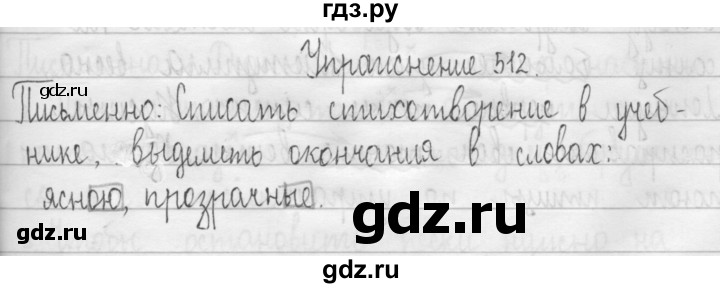 гдз.ру
Упражнение 512.
gdz.ru
Письменно: Списать стихотворение в учеб-
нике, выделить окончания в словах:
ясною, прозрачные.
gdz.ru
gdz.ru
gdz.ru